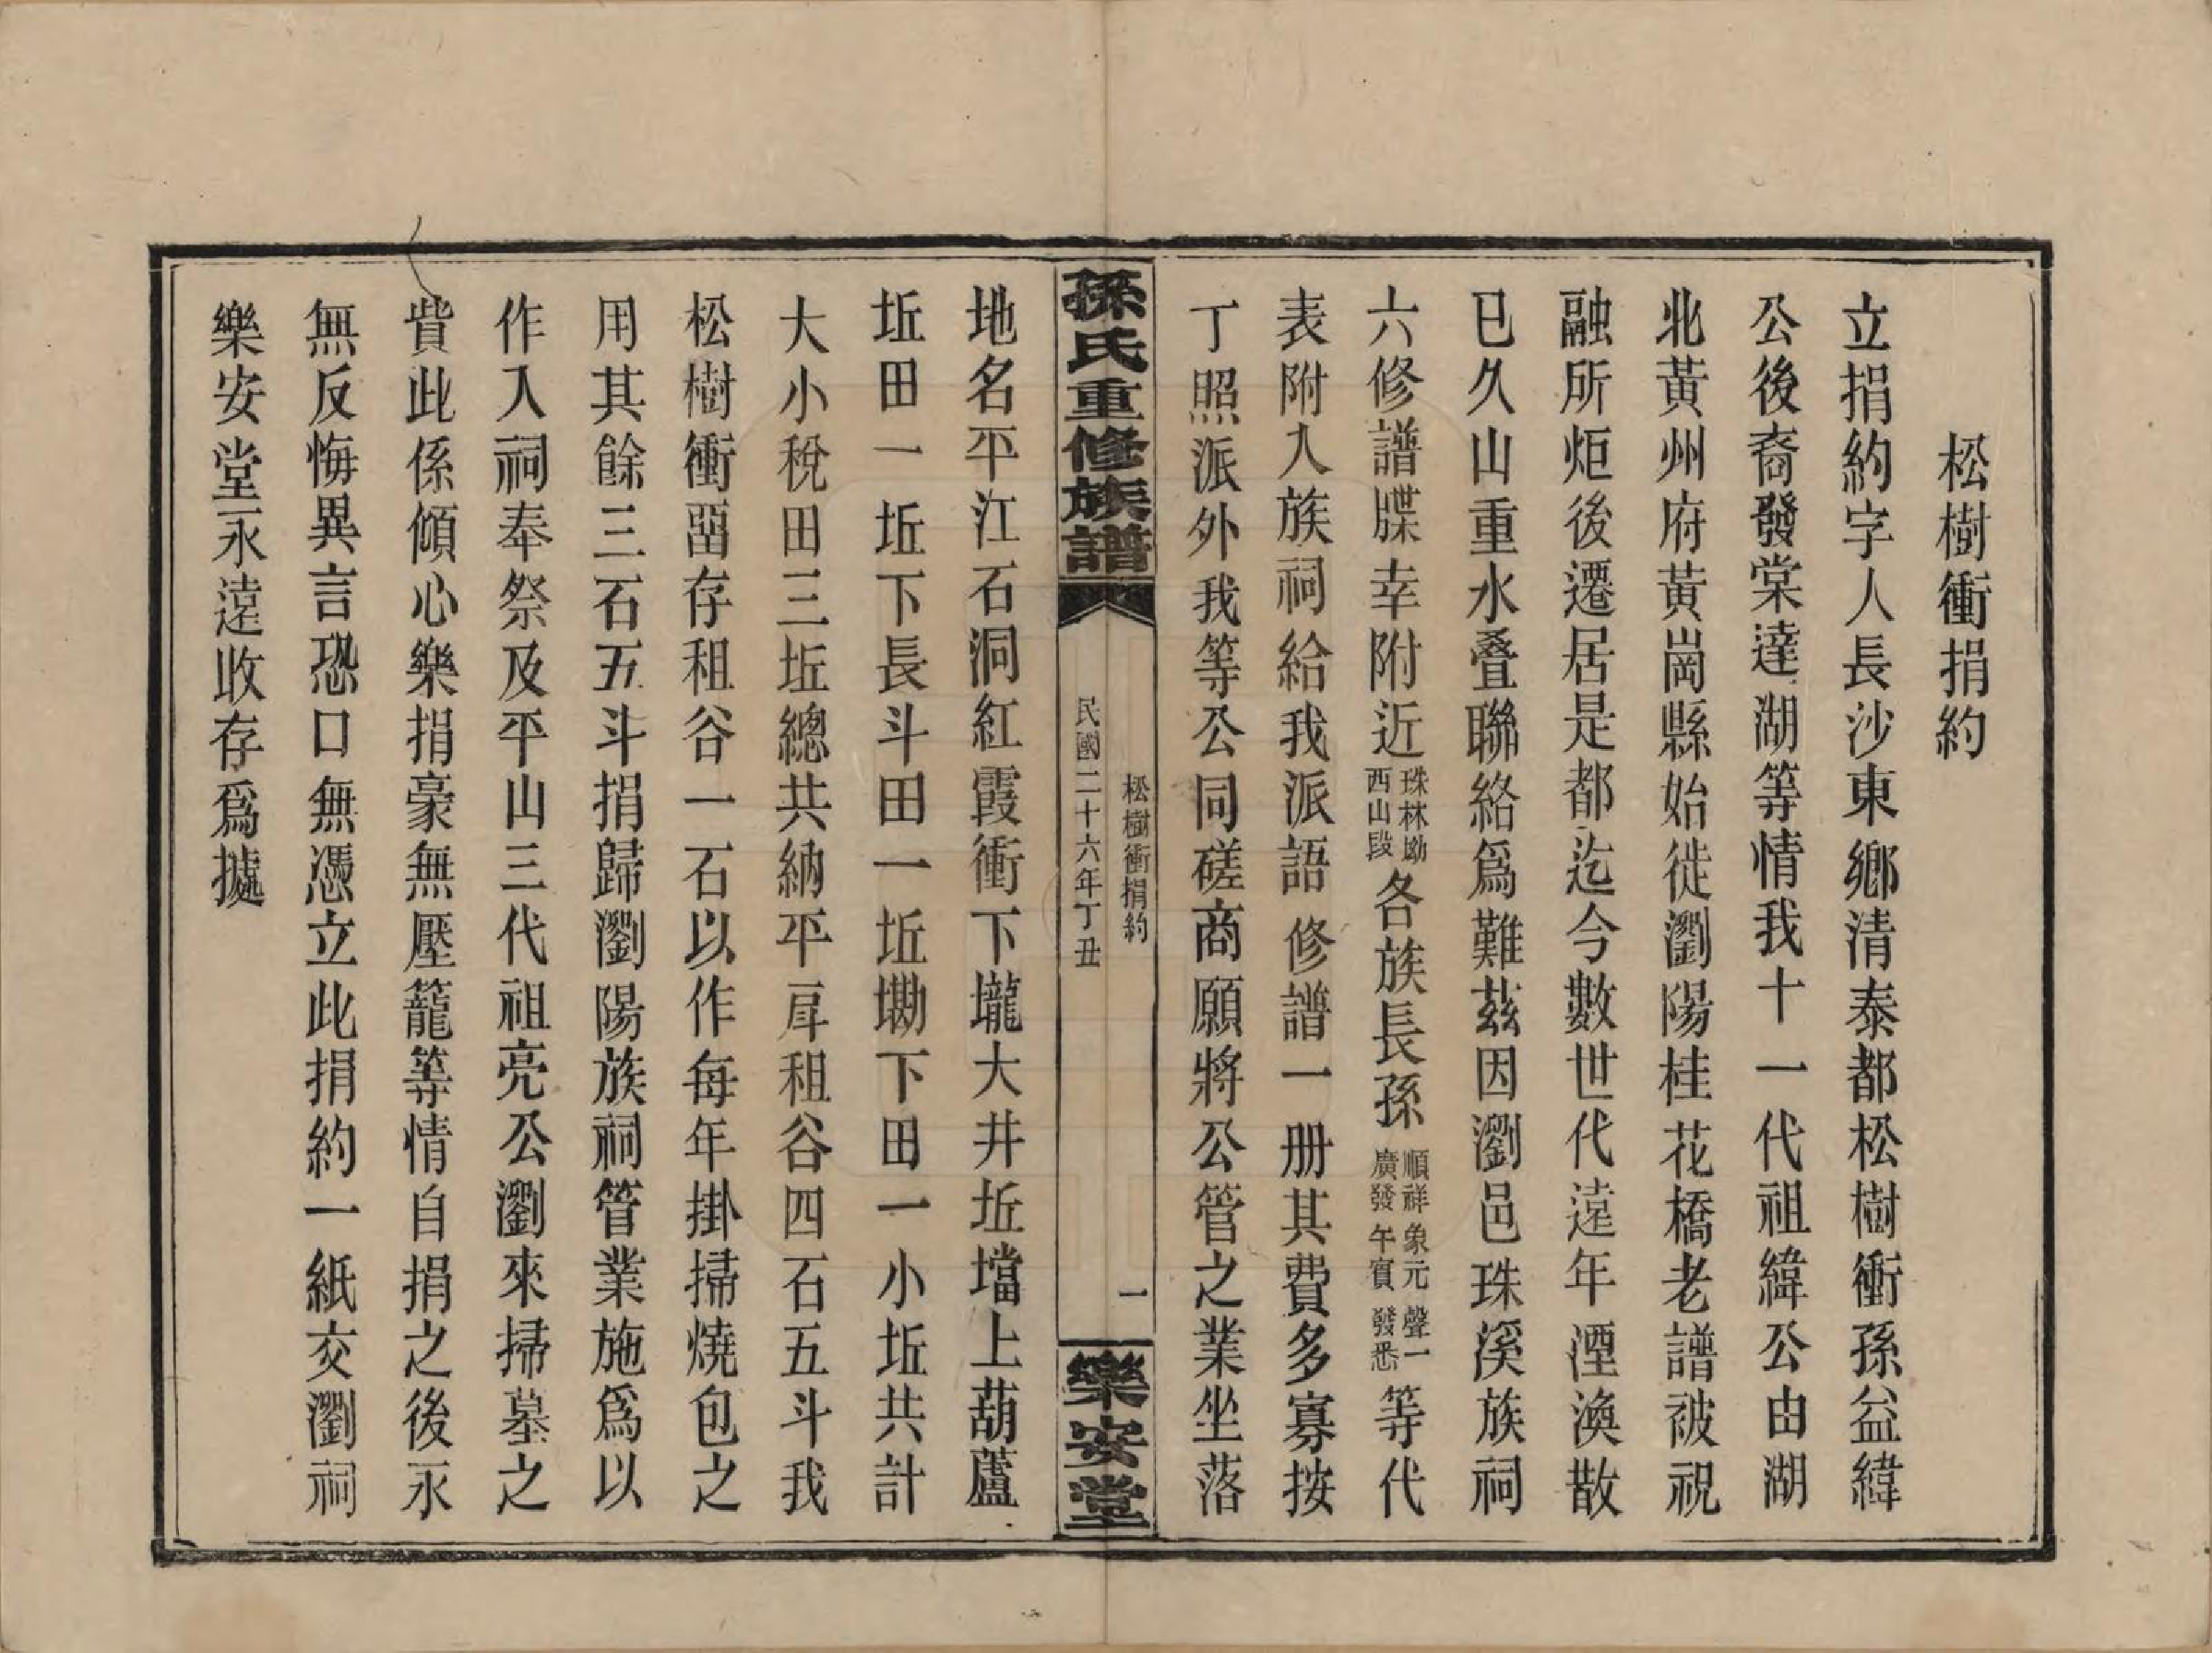 松樹衝捐約
立捐約字人長沙東鄉清泰都松樹衝孫益緯
公後裔發棠達湖等情我十一代祖緯公由湖
北黃州府黃崗縣始徙瀏陽桂花橋老譜被祝
融所炬後遷居是都迄今數世代遠年湮渙散
已久山重水叠聯絡爲難茲因瀏邑珠溪族祠
六修譜牒幸附近珠林坳西山段各族長孫順祥象元聲一廣發午賓發悉等代
表附入族祠給我派語修譜一册其費多寡按
丁照派外我等公同磋商願將公管之業坐落
孫氏重修族譜
松樹衝捐約
一
民國二十六年丁丑
樂安堂
地名平江石洞紅霞衝下壠大井坵壋上葫蘆
坵田一坵下長斗田一坵墈下田一小坵共計
大小稅田三坵總共納平斛租谷四石五斗我
松樹衝畱存租谷一石以作每年掛掃燒包之
用其餘三石五斗捐歸瀏陽族祠管業施爲以
作入祠奉祭及平山三代祖亮公瀏來掃墓之
貲此係傾心樂捐豪無壓籠等情自捐之後永
無反悔異言恐口無憑立此捐約一紙交瀏祠
樂安堂永遠收存爲據